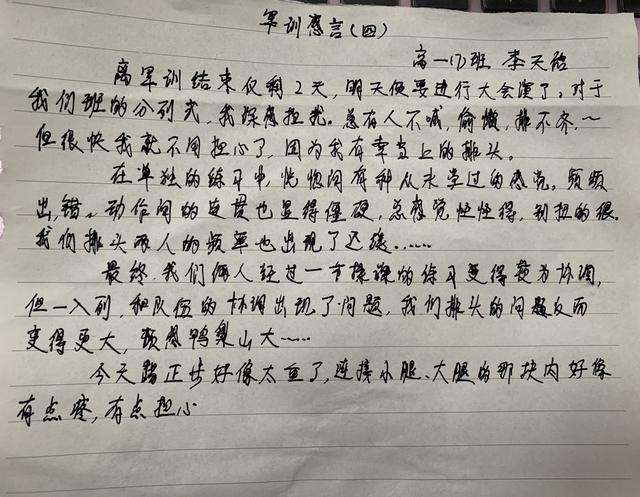 军训感言(四)
高一17班 李天皓
离军训结束仅剩2天,明天便要进行大会演了。对于
我们班的分列式,我深感担忧。总有人不喊,偷懒,排不齐,~
但很快我就不用担心了,因为我有幸当上的排头。
在单独的练习中,恍惚间有种从未学过的感觉。频频
出错。动作间的连贯也显得僵硬,总感觉怪怪得,别扭的很。
我们排头两人的频率也出现了迟缓......
最终,我们俩人经过一节操课的练习变得较为协调,
但一入列,和队伍的协调出现了问题,我们排头的问题反而
变得更大,顿感鸭梨山大......
今天踢正步好像太重了,连接小腿、大腿的那块肉好像
有点疼,有点担心